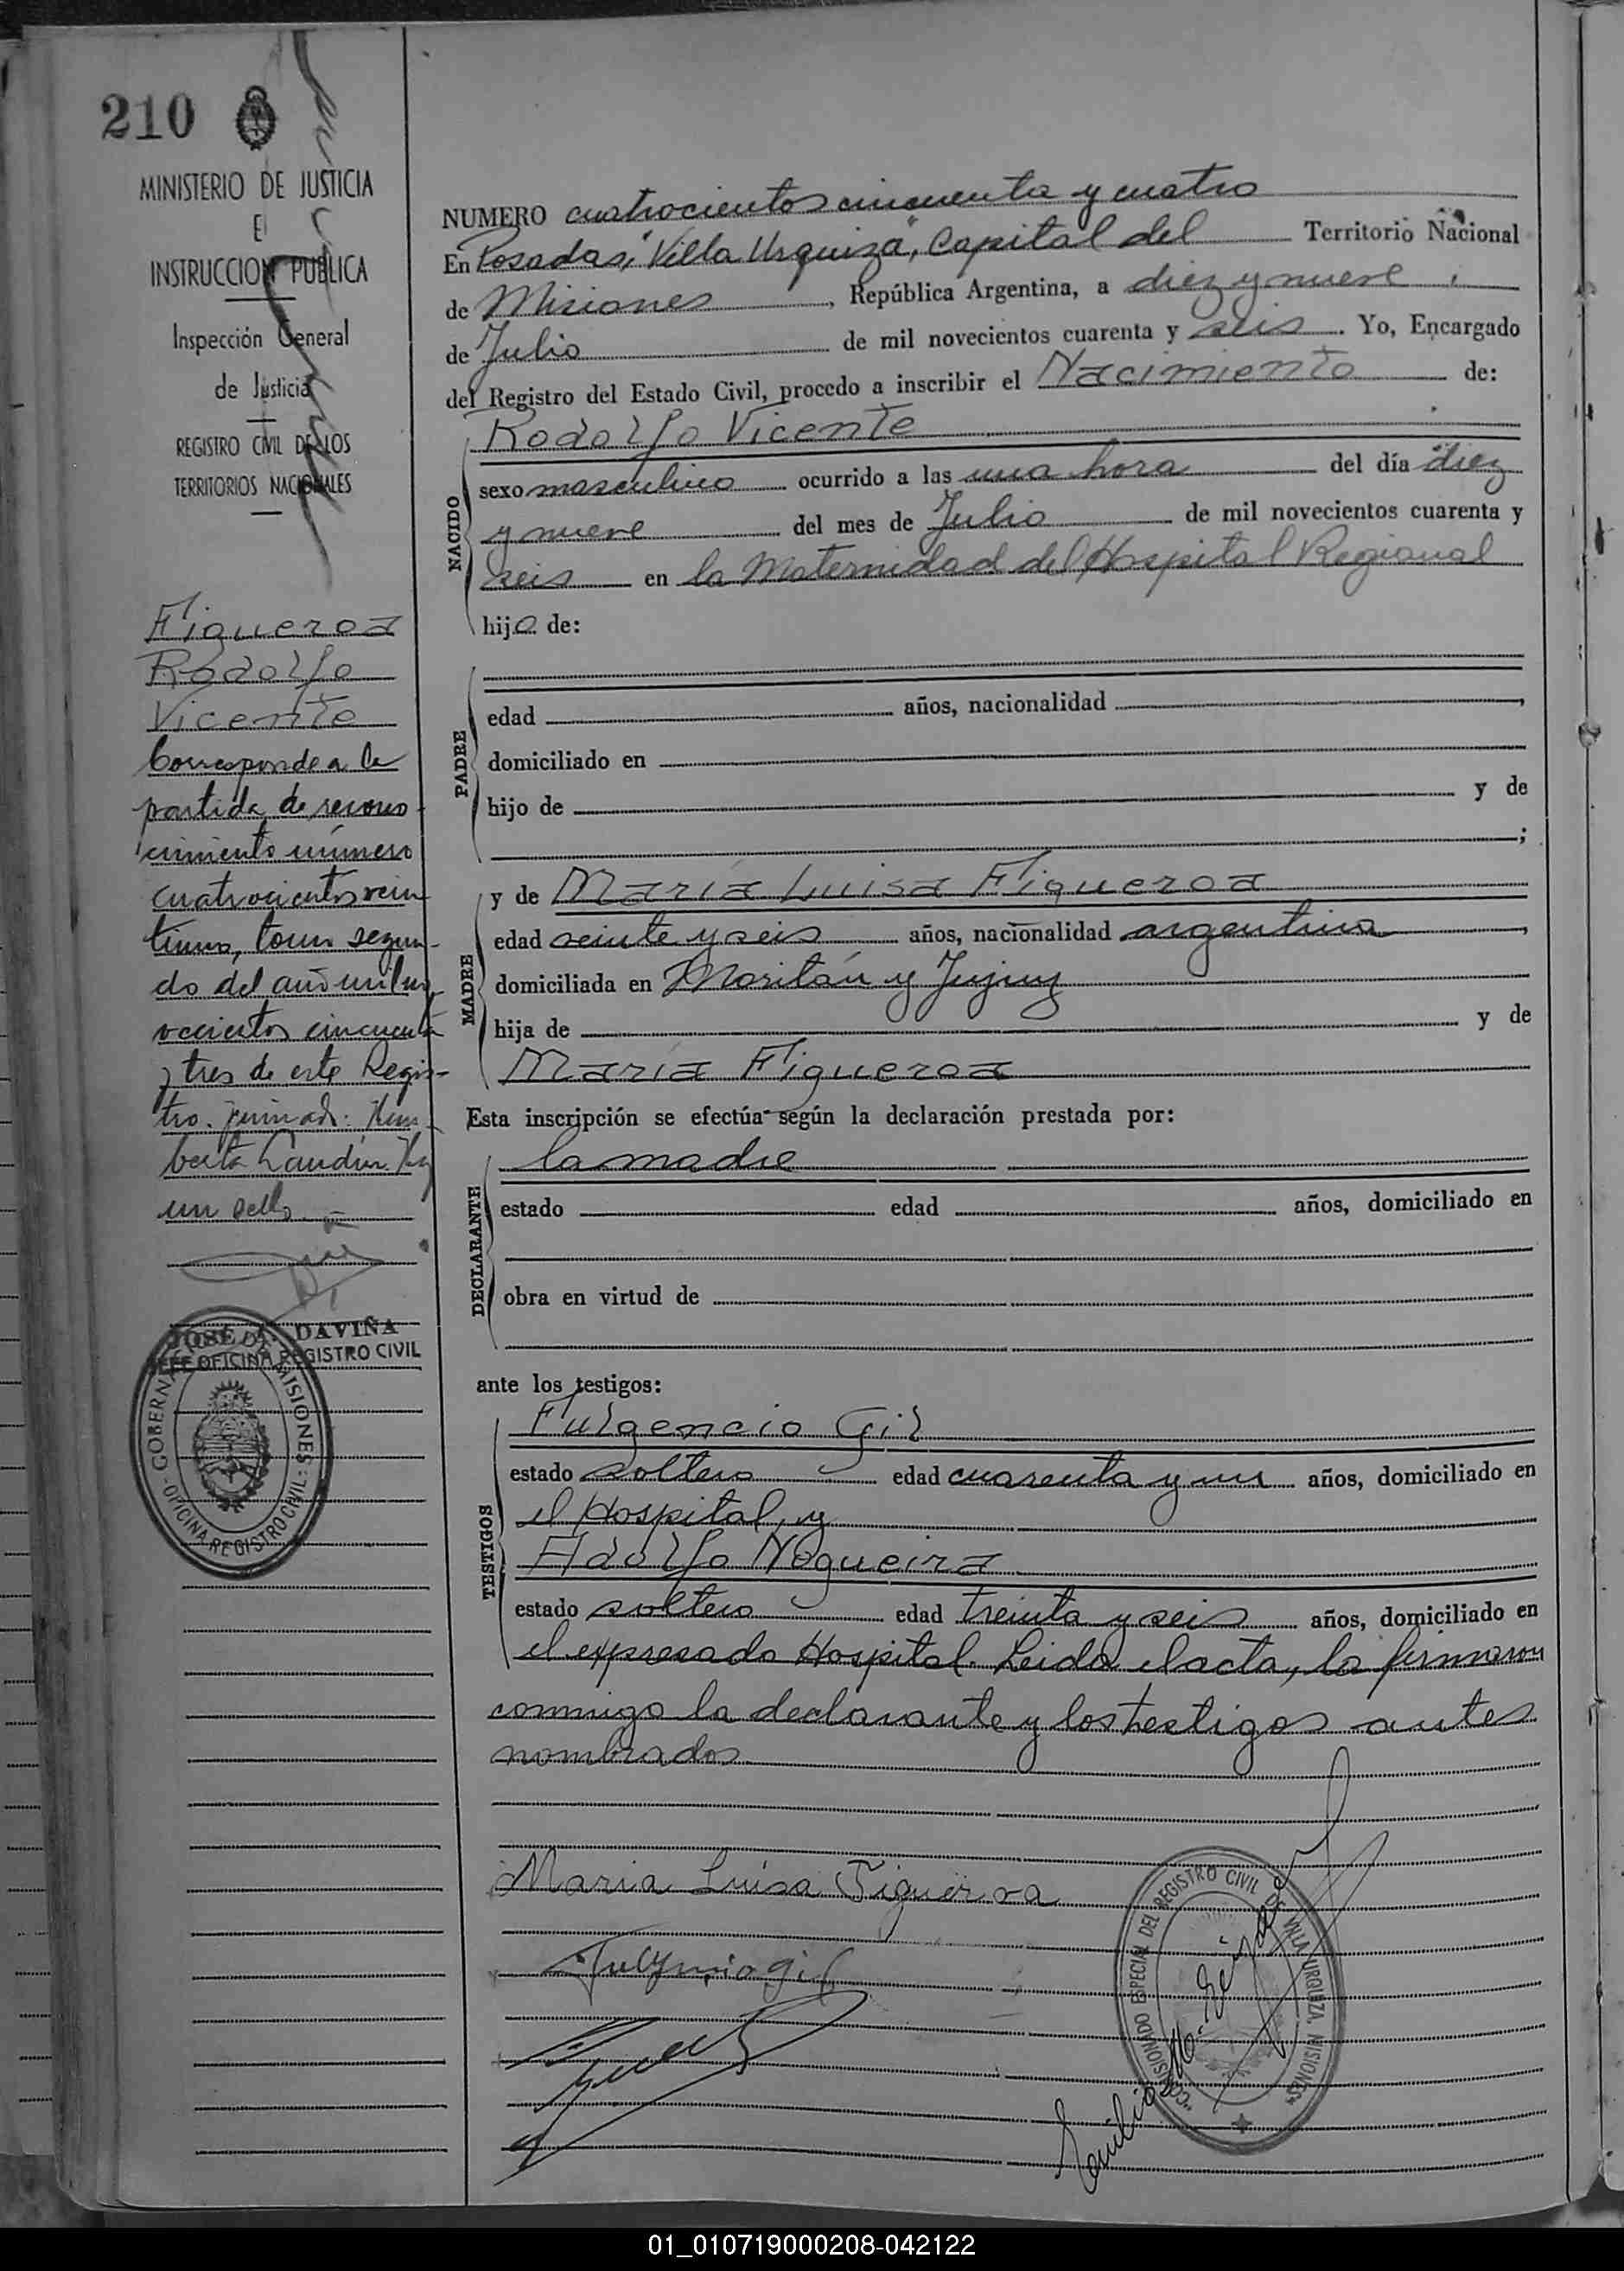 210
MINISTERIO DE JUSTICIA
E
INSTRUCCION PUBLICA
Inspección General
de Justicia
REGISTRO CIVIL DE LOS
TERRITORIOS NACIONALES
Figueroa
Rodolfo
Vicente
Corresponde a la
partida de recono-
cimiento número
cuatrocientos vein
tiuno, tomo segun-
do del año mil no
vecientos cincuenta
y tres de este Regis-
tro. Firmado: Hum
berto Landin. Hay
un sello.
JOSÉ A. DAVIÑA
JEFE OFICINA REGISTRO CIVIL
GOBERNACION DE MISIONES
OFICINA REGISTRO CIVIL
NUMERO cuatrocientos cincuenta y cuatro
En Posadas, "Villa Urquiza", Capital del Territorio Nacional
de Misiones, República Argentina, a diez y nueve
de Julio de mil novecientos cuarenta y seis. Yo, Encargado
del Registro del Estado Civil, procedo a inscribir el Nacimiento de:
NACIDO
Rodolfo Vicente
sexo masculino ocurrido a las una hora del día diez
y nueve del mes de Julio de mil novecientos cuarenta y
seis en la Maternidad del Hospital Regional
hijo de:
PADRE
edad años, nacionalidad ,
domiciliado en
hijo de y de
;
MADRE
y de María Luisa Figueroa
edad veinte y seis años, nacionalidad argentina,
domiciliada en Moritán y Jujuy
hija de y de
María Figueroa
Esta inscripción se efectúa según la declaración prestada por:
DECLARANTE
la madre
estado edad años, domiciliado en
obra en virtud de
ante los testigos:
TESTIGOS
Fulgencio Gil
estado soltero edad cuarenta y un años, domiciliado en
el Hospital, y
Adolfo Nogueira
estado soltero edad treinta y seis años, domiciliado en
el expresado Hospital. Leida el acta, la firmaron
conmigo la declarante y los testigos antes
nombrados.
Maria Luisa Figueroa
Fulgencio Gil
COMISIONADO ESPECIAL DEL REGISTRO CIVIL DE VILLA URQUIZA, MISIONES
01_010719000208-042122